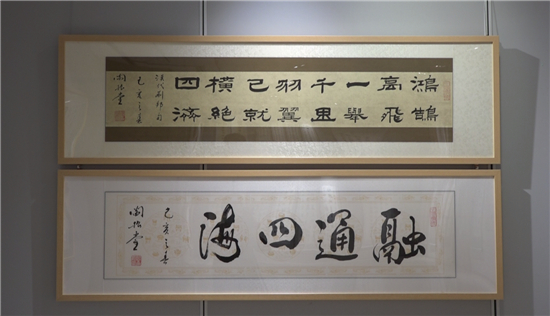 鴻鵠
高飛
一舉
千里
羽翼
已就
橫絕
四海
己亥之春
融通四海
己亥之春